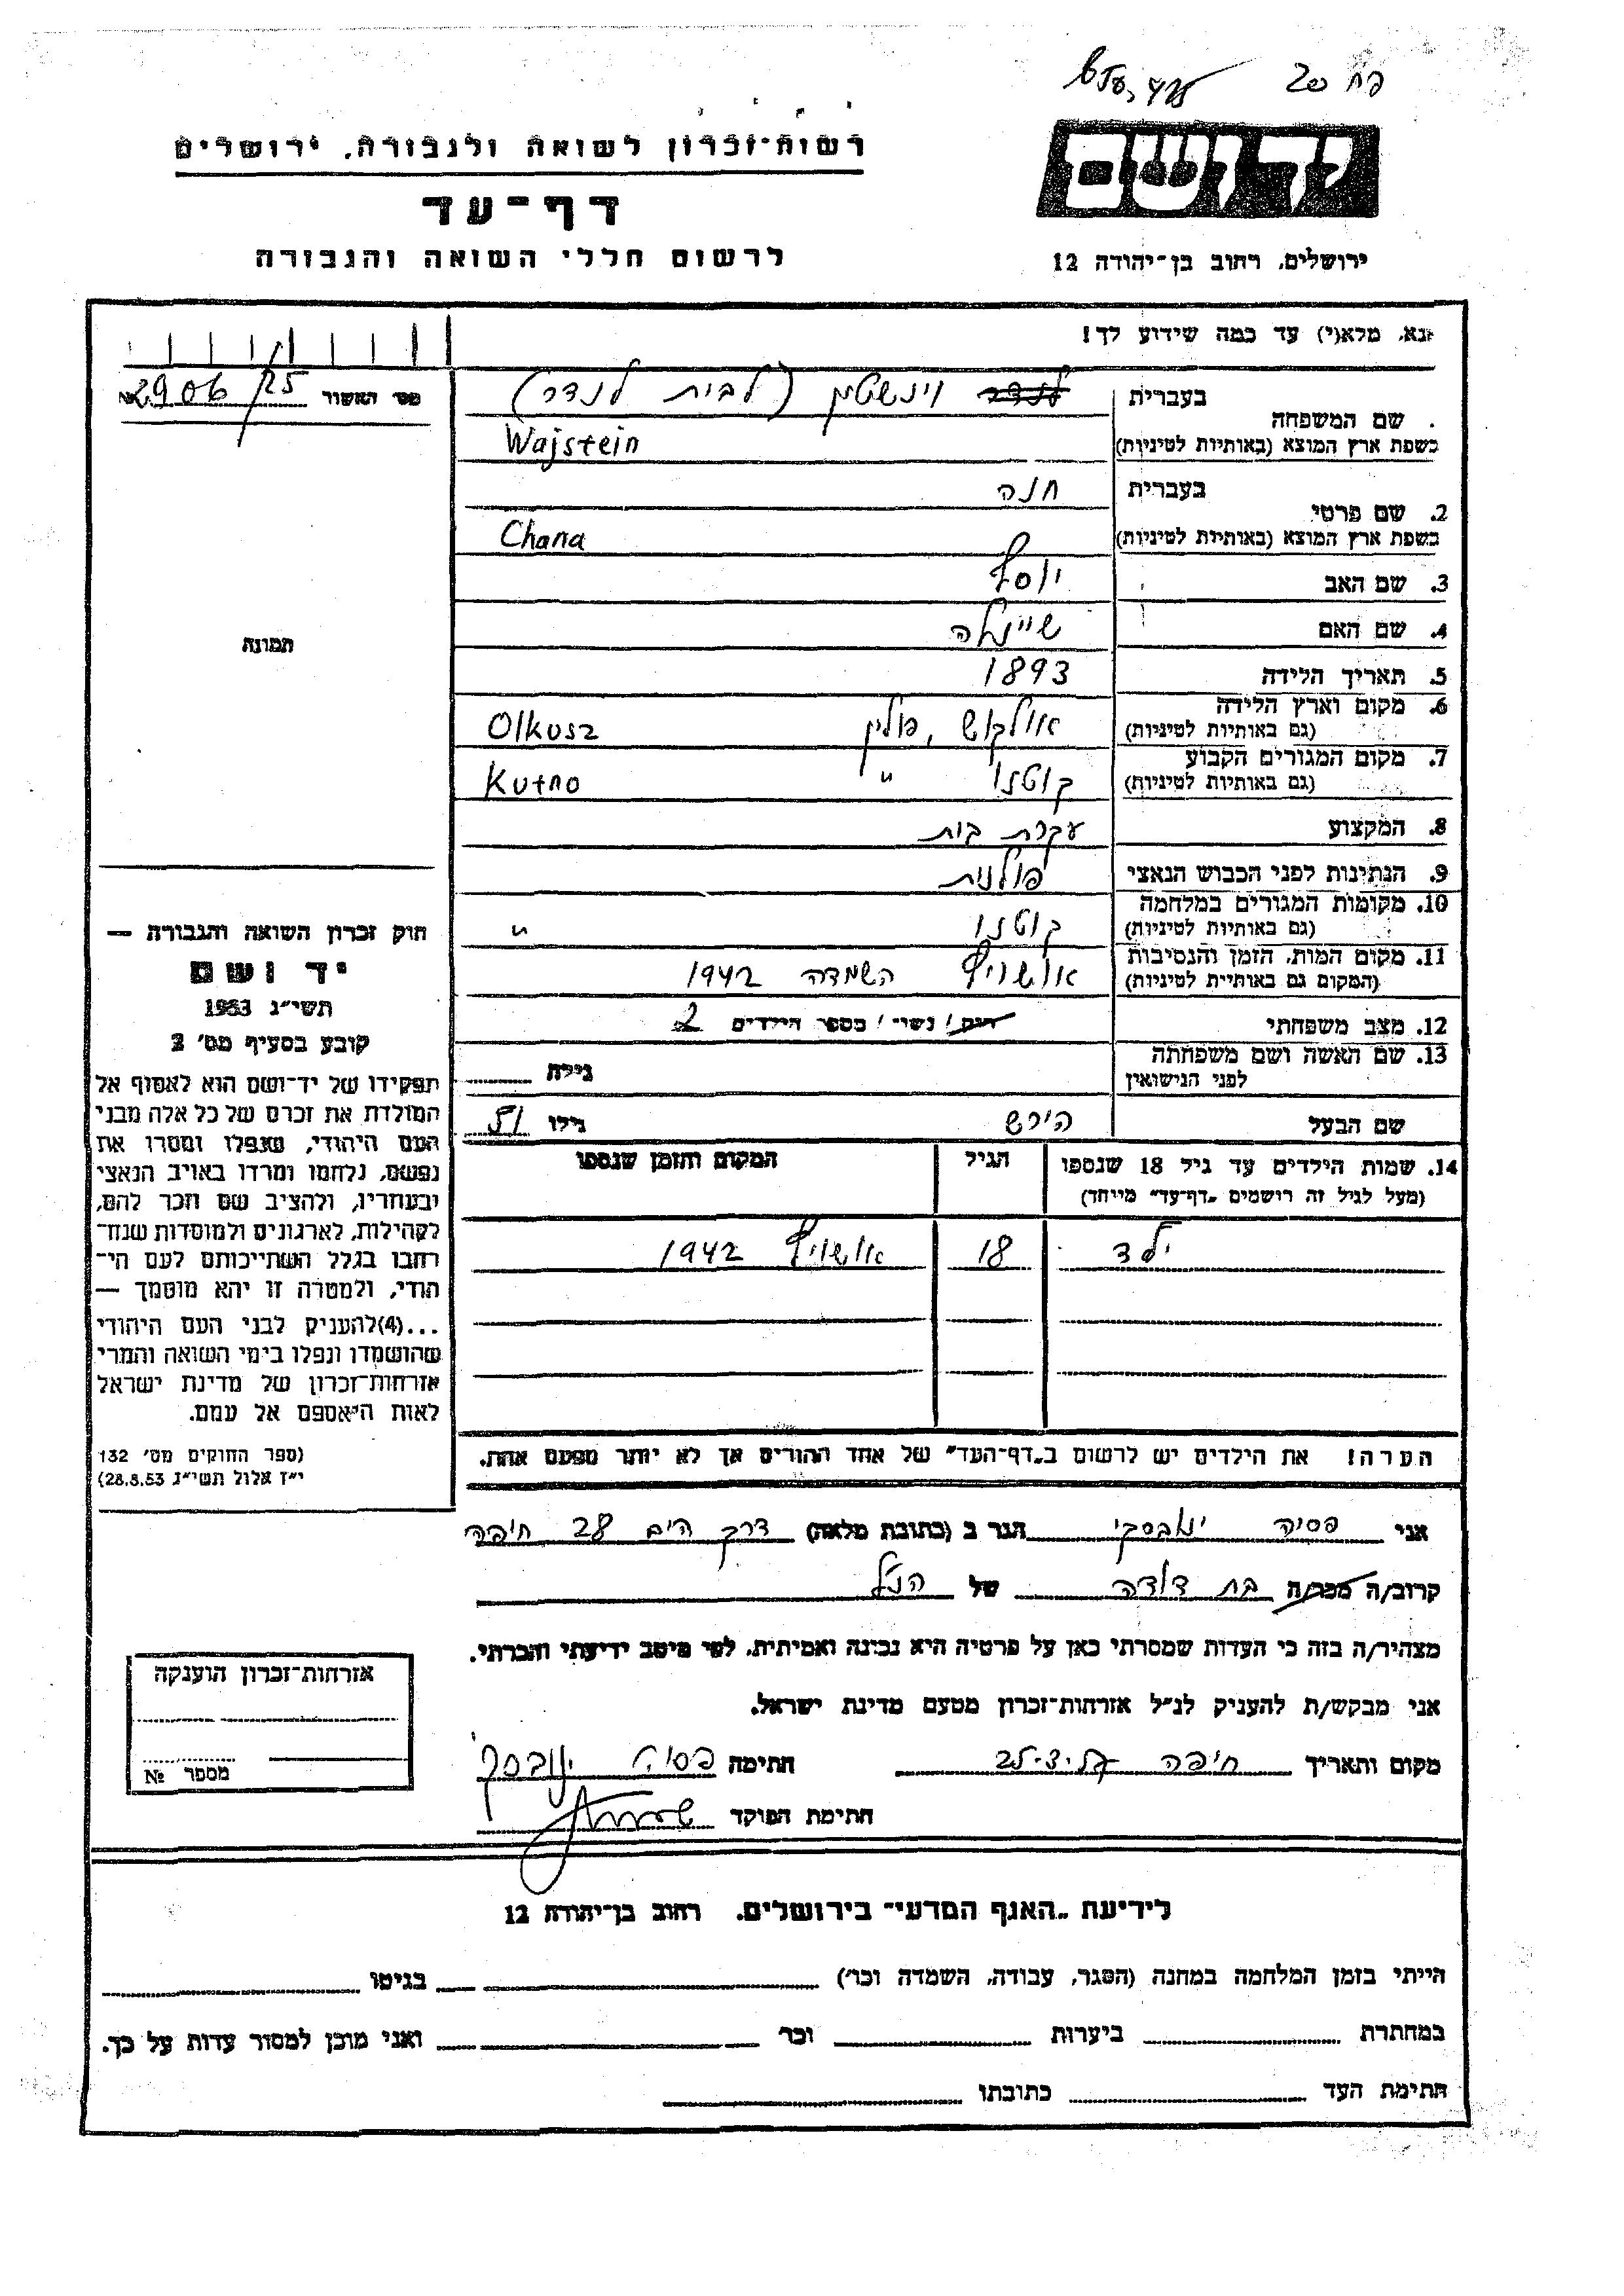 פח 20
רשות-זכרון לשואה ולגבורה, ירושלים
דף-עד
לרשום חללי השואה והגבורה
יד ושם
ירושלים, רחוב בן-יהודה 12
נא, מלא(י) עד כמה שידוע לך!
מס' האשור 2906/25
שם המשפחה
בעברית לנדר וינשטין (לבית לנדר)
בשפת ארץ המוצא (באותיות לטיניות) Wajstein
2. שם פרטי
בעברית חנה
בשפת ארץ המוצא (באותיות לטיניות) Chana
3. שם האב יוסף
4. שם האם שיינדלה
5. תאריך הלידה 1893
6. מקום וארץ הלידה (גם באותיות לטיניות) אולקוש, פולין Olkusz
7. מקום המגורים הקבוע (גם באותיות לטיניות) קוטנו " Kutno
8. המקצוע עקרת בית
9. הנתינות לפני הכבוש הנאצי פולנית
10. מקומות המגורים במלחמה (גם באותיות לטיניות) קוטנו "
11. מקום המות, הזמן והנסיבות (המקום גם באותיות לטיניות) אושויץ השמדה 1942
12. מצב משפחתי רווק / נשוי / מספר הילדים 2
13. שם האשה ושם משפחתה לפני הנישואין גילה
שם הבעל הירש גילו 51
14. שמות הילדים עד גיל 18 שנספו (מעל לגיל זה רושמים "דף-עד" מיוחד) הגיל המקום והזמן שנספו
ילד 18 אושויץ 1942
הערה! את הילדים יש לרשום ב"דף-העד" של אחד ההורים אך לא יותר מפעם אחת.
תמונה
חוק זכרון השואה והגבורה —
יד ושם
תשי"ג 1953
קובע בסעיף מס' 2
תפקידו של יד-ושם הוא לאסוף אל
המולדת את זכרם של כל אלה מבני
העם היהודי, שנפלו ומסרו את
נפשם, נלחמו ומרדו באויב הנאצי
ובעוזריו, ולהציב שם וזכר להם,
לקהילות, לארגונים ולמוסדות שנח-
רבו בגלל השתייכותם לעם הי-
הודי, ולמטרה זו יהא מוסמך —
...(4) להעניק לבני העם היהודי
שהושמדו ונפלו בימי השואה והמרי
אזרחות-זכרון של מדינת ישראל
לאות היאספם אל עמם.
(ספר החוקים מס' 132
י"ז אלול תשי"ג 28.8.53)
אני פסיה ינובסקי הגר ב (כתובת מלאה) דרך הים 28 חיפה
קרוב/ה מכר/ה בת דודה של הנ"ל
מצהיר/ה בזה כי העדות שמסרתי כאן על פרטיה היא נכונה ואמיתית, לפי מיטב ידיעתי והכרתי.
אני מבקש/ת להעניק לנ"ל אזרחות-זכרון מטעם מדינת ישראל.
מקום ותאריך חיפה חתימה פסיה ינובסקי
חתימת הפוקד
אזרחות-זכרון הוענקה
מספר №
לידיעת "האגף המדעי" בירושלים, רחוב בן-יהודה 12
הייתי בזמן המלחמה במחנה (הסגר, עבודה, השמדה וכו') בגיטו
במחתרת ביערות וכו' ואני מוכן למסור עדות על כך.
חתימת העד כתובתו